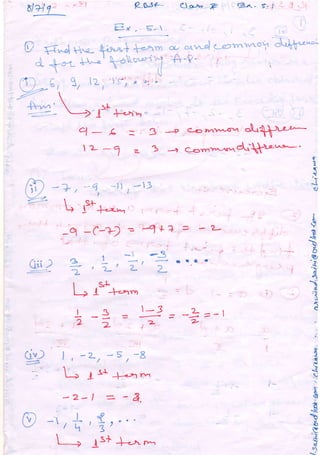 8/7/9
Ex. 5.1
① Find the first term a and common difference
d for the following A.P.
(i) 6, 9, 12, 15, . . .
Ans:
↳ 1st term
9 - 6 = 3 → common difference
12 - 9 = 3 → common difference.
(ii) -7, -9, -11, -13
↳ 1st term
-9 -(-7) = -9+7 = -2
(iii) 3/2, 1/2, -1/2, -3/2 ....
↳ 1st term
1/2 - 3/2 = 1-3/2 = -2/2 = -1
(iv) 1, -2, -5, -8
↳ 1st term
-2-1 = -3,
(v) -1, 1/4,
↳ 1st term